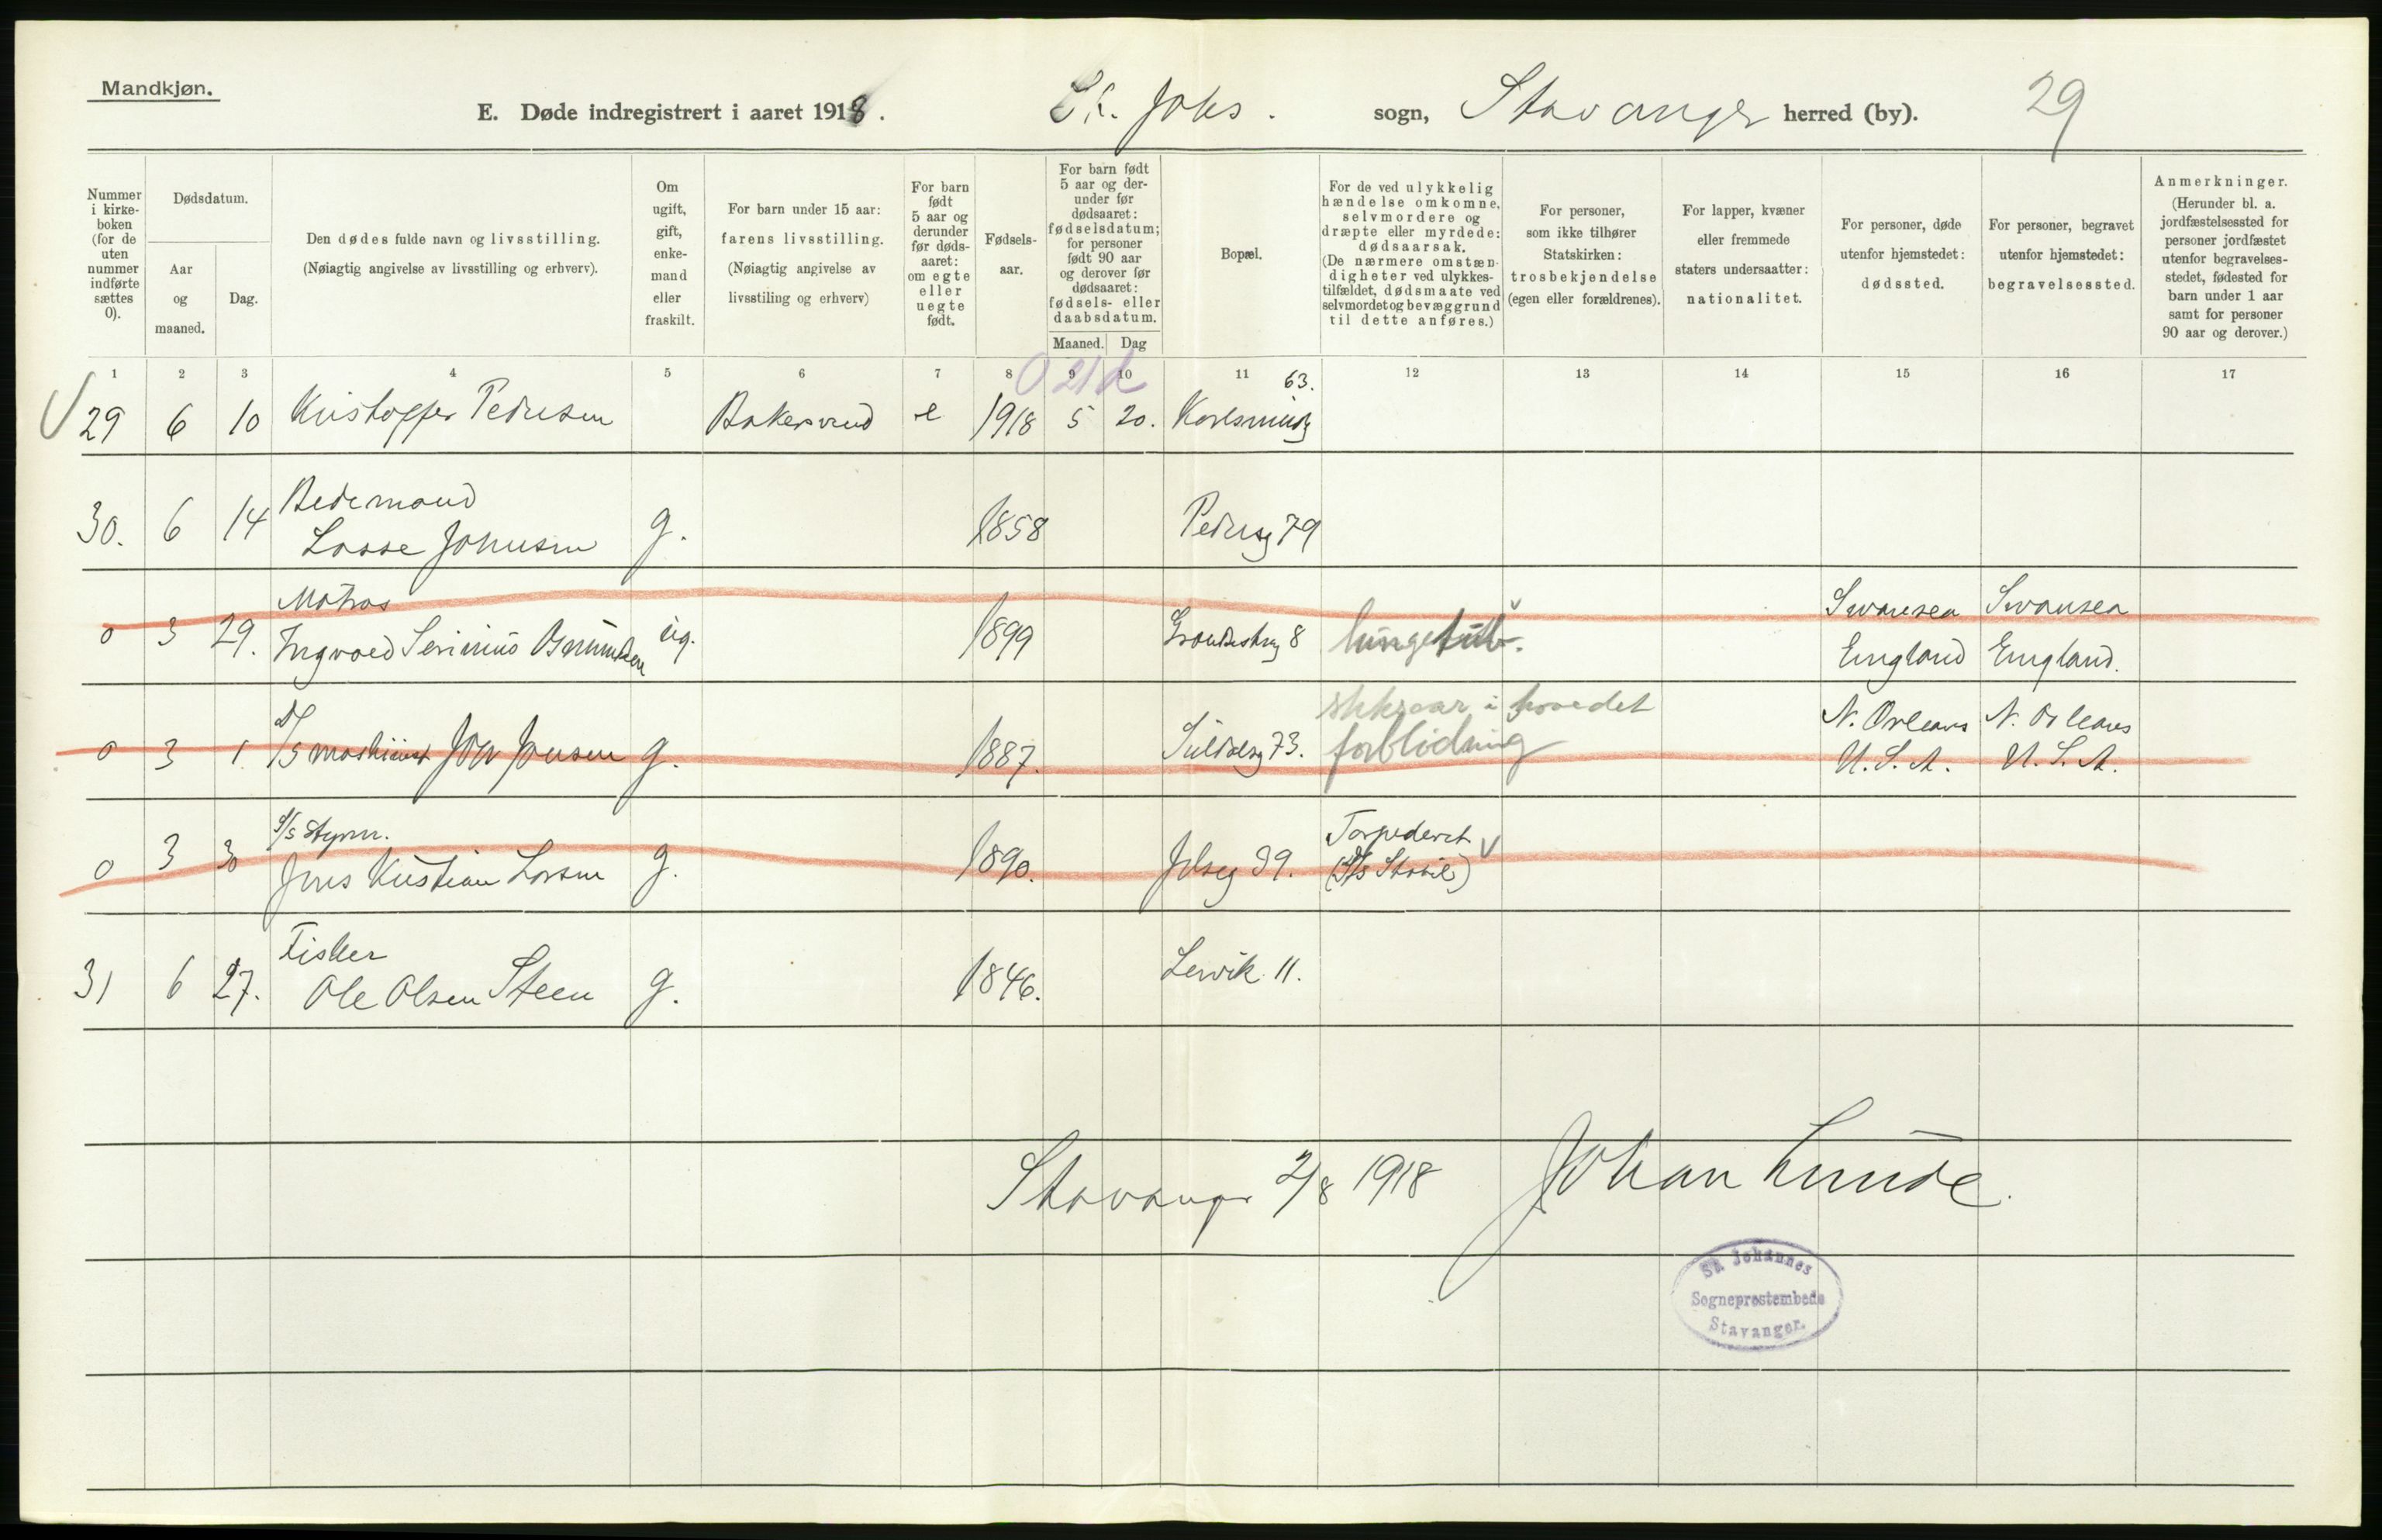 Mandkjøn.
E. Døde indregistrert i aaret 1918.
St. Johs. sogn, Stavanger herred (by).
29
Nummer i kirke-boken (for de uten nummer indførte sættes 0).
Dødsdatum.
Aar og maaned.
Dag.
Den dødes fulde navn og livsstilling. (Nøiagtig angivelse av livsstilling og erhverv).
Om ugift, gift, enke-mand eller fraskilt.
For barn under 15 aar: farens livsstilling. (Nøiagtig angivelse av livsstiling og erhverv)
For barn født 5 aar og derunder før døds-aaret: om egte eller uegte født.
Fødsels-aar.
For barn født 5 aar og der-under før dødsaaret: fødselsdatum; for personer født 90 aar og derover før dødsaaret: fødsels- eller daabsdatum.
Maaned.
Dag
Bopæl.
For de ved ulykkelig hændelse omkomne, selvmordere og dræpte eller myrdede: dødsaarsak. (De nærmere omstæn-digheter ved ulykkes-tilfældet, dødsmaate ved selvmordet og bevæggrund til dette anføres.)
For personer, som ikke tilhører Statskirken: trosbekjendelse (egen eller forældrenes).
For lapper, kvæner eller fremmede staters undersaatter: nationalitet.
For personer, døde utenfor hjemstedet: dødssted.
For personer, begravet utenfor hjemstedet: begravelsessted.
Anmerkninger. (Herunder bl. a. jordfæstelsessted for personer jordfæstet utenfor begravelses-stedet, fødested for barn under 1 aar samt for personer 90 aar og derover.)
1 2 3 4 5 6 7 8 9 10 11 12 13 14 15 16 17
0 21 d
63.
29 6 10 Kristoffer Pedersen Bakersvend e 1918 5 20. Karlsminneg
Bedemand
30. 6 14 Lasse Johnsen g. 1858 Pedersg 79
Matros
0 3 29. Ingvald Severinus Osmundsen ug. 1899 8 lungetub.
Swansea England
Swansea England.
stiksaar i hovedet
0 3 1 D/S maskinist Jonsen g. 1887. Suldalsg 73. forblødning
N. Orleans U.S.A.
N. Orleans U.S.A.
S/S Styrm.
0 3 30 Jens Kristian Larsen g. 1890. Jelseg 39. Torpedert
Fisker
31 6 27. Ole Olsen Steen g. 1846. Lervik 11.
Stavanger 2/8 1918 Johan Lunde.
St Johannes
Sogneprestembede
Stavanger.